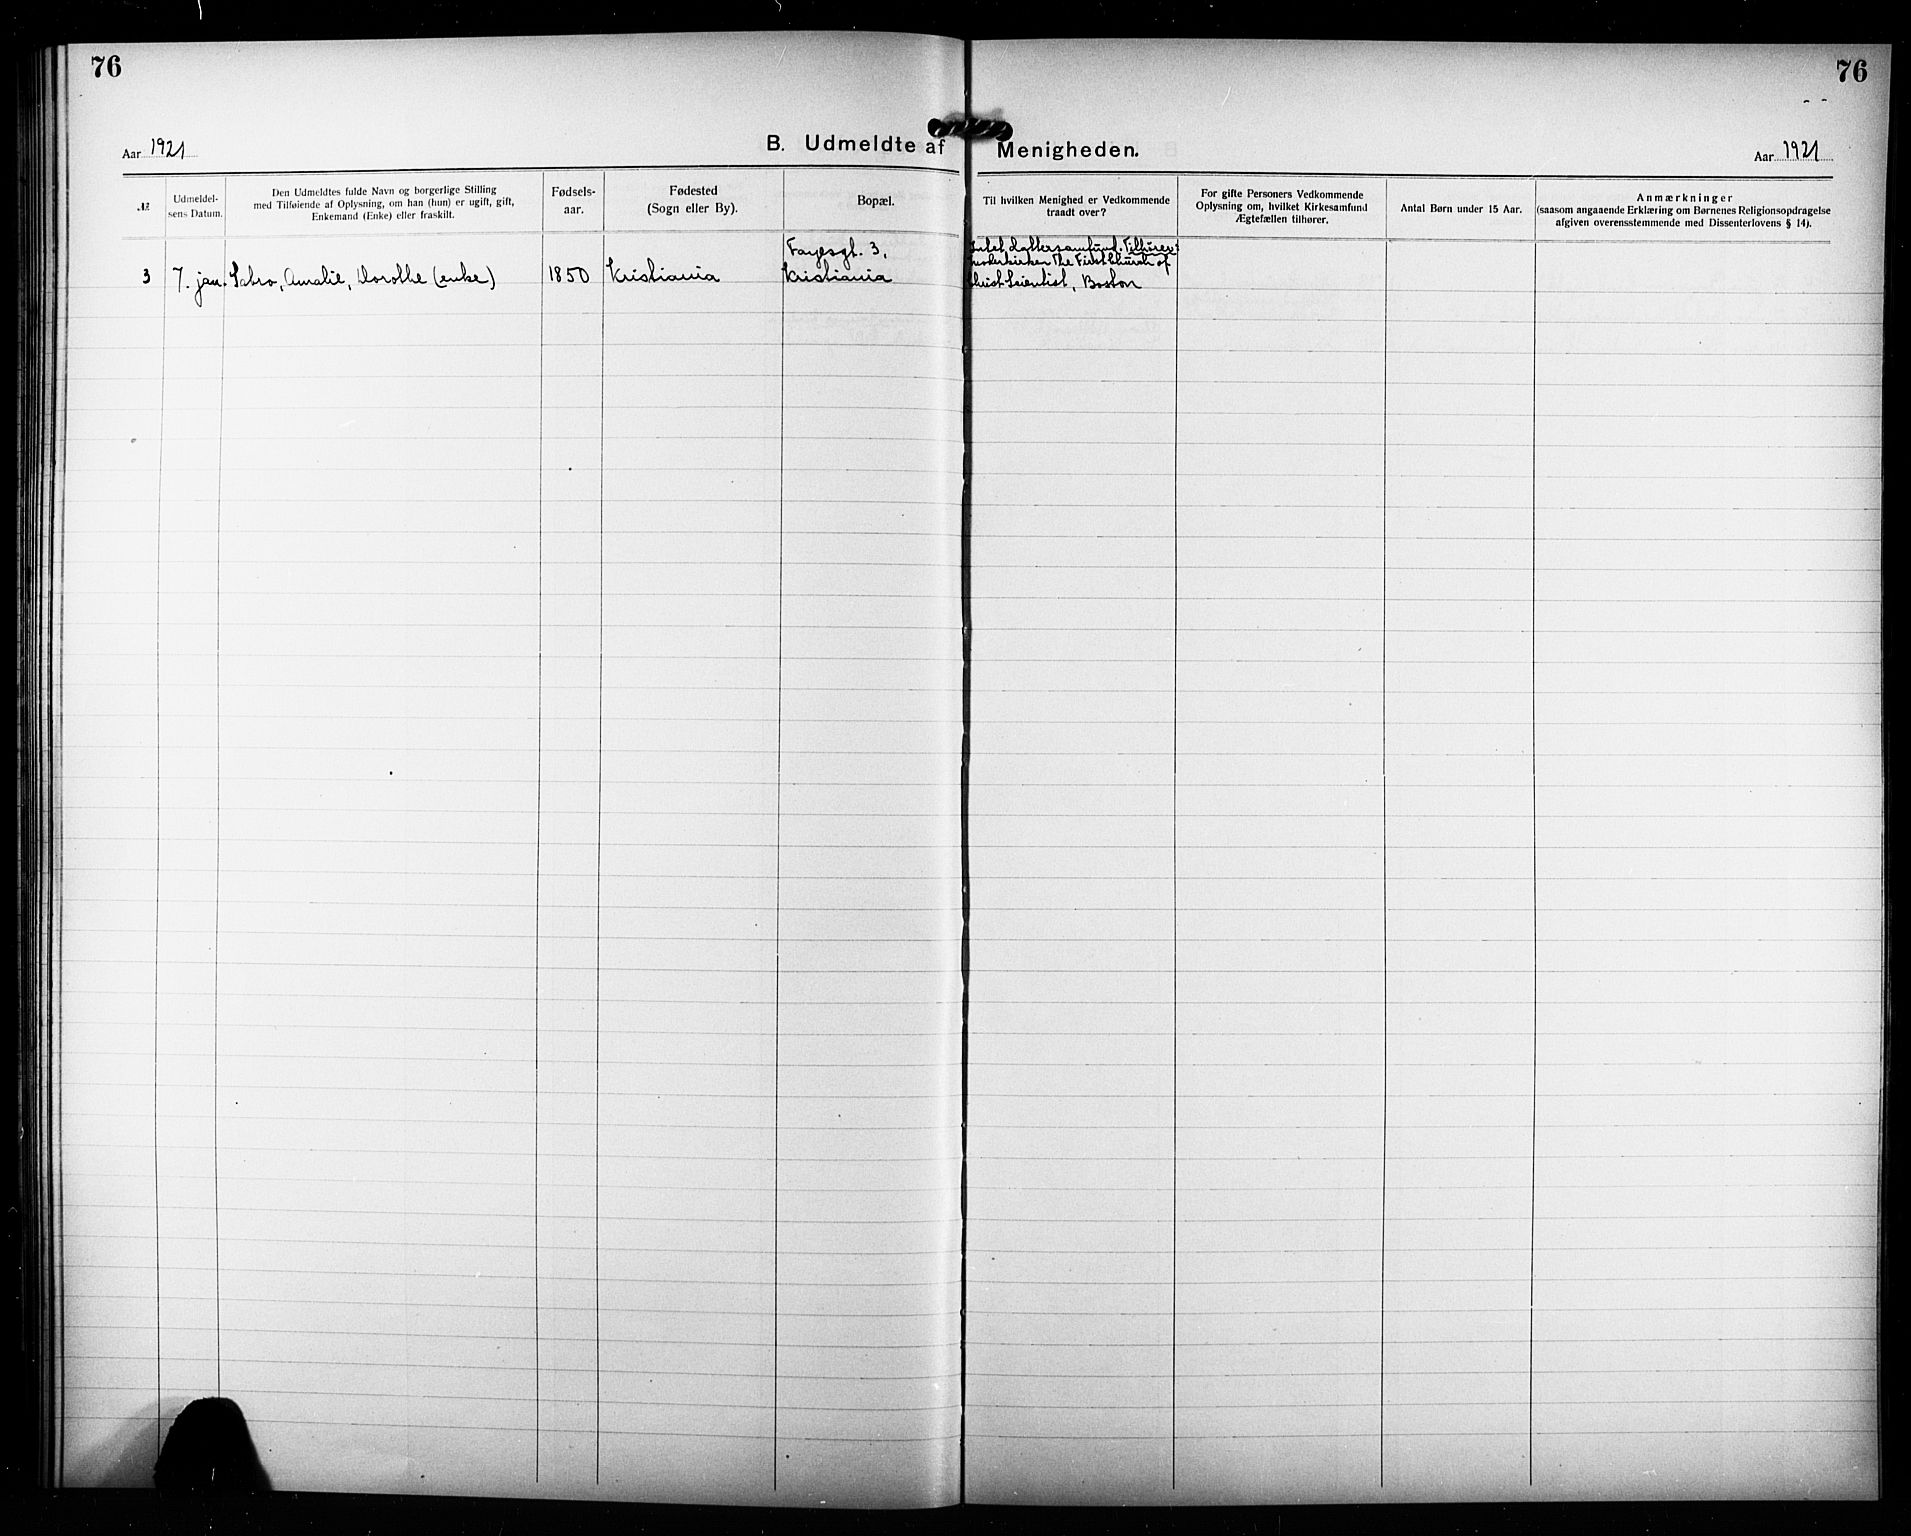 76
Aar 1921
B. Udmeldte af
№
Udmeldel-
sens Datum.
Den Udmeldtes fulde Navn og borgerlige Stilling
med Tilføiende af Oplysning, om han (hun) er ugift, gift,
Enkemand (Enke) eller fraskilt.
Fødsels-
aar.
Fødested
(Sogn eller By).
Bopæl.
Fayesgt. 3,
3 7. jan. Amalie, Dorothe (enke) 1850 Kristiania Kristiania
76
Menigheden.
Aar 1921
Til hvilken Menighed er Vedkommende
traadt over?
For gifte Personers Vedkommende
Oplysning om, hvilket Kirkesamfund
Ægtefællen tilhører.
Antal Børn under 15 Aar.
Anmærkninger
(saasom angaaende Erklæring om Børnenes Religionsopdragelse
afgiven overensstemmende med Dissenterlovens § 14).
Intet Tilhører
The First Church of
Christ Scientist, Boston